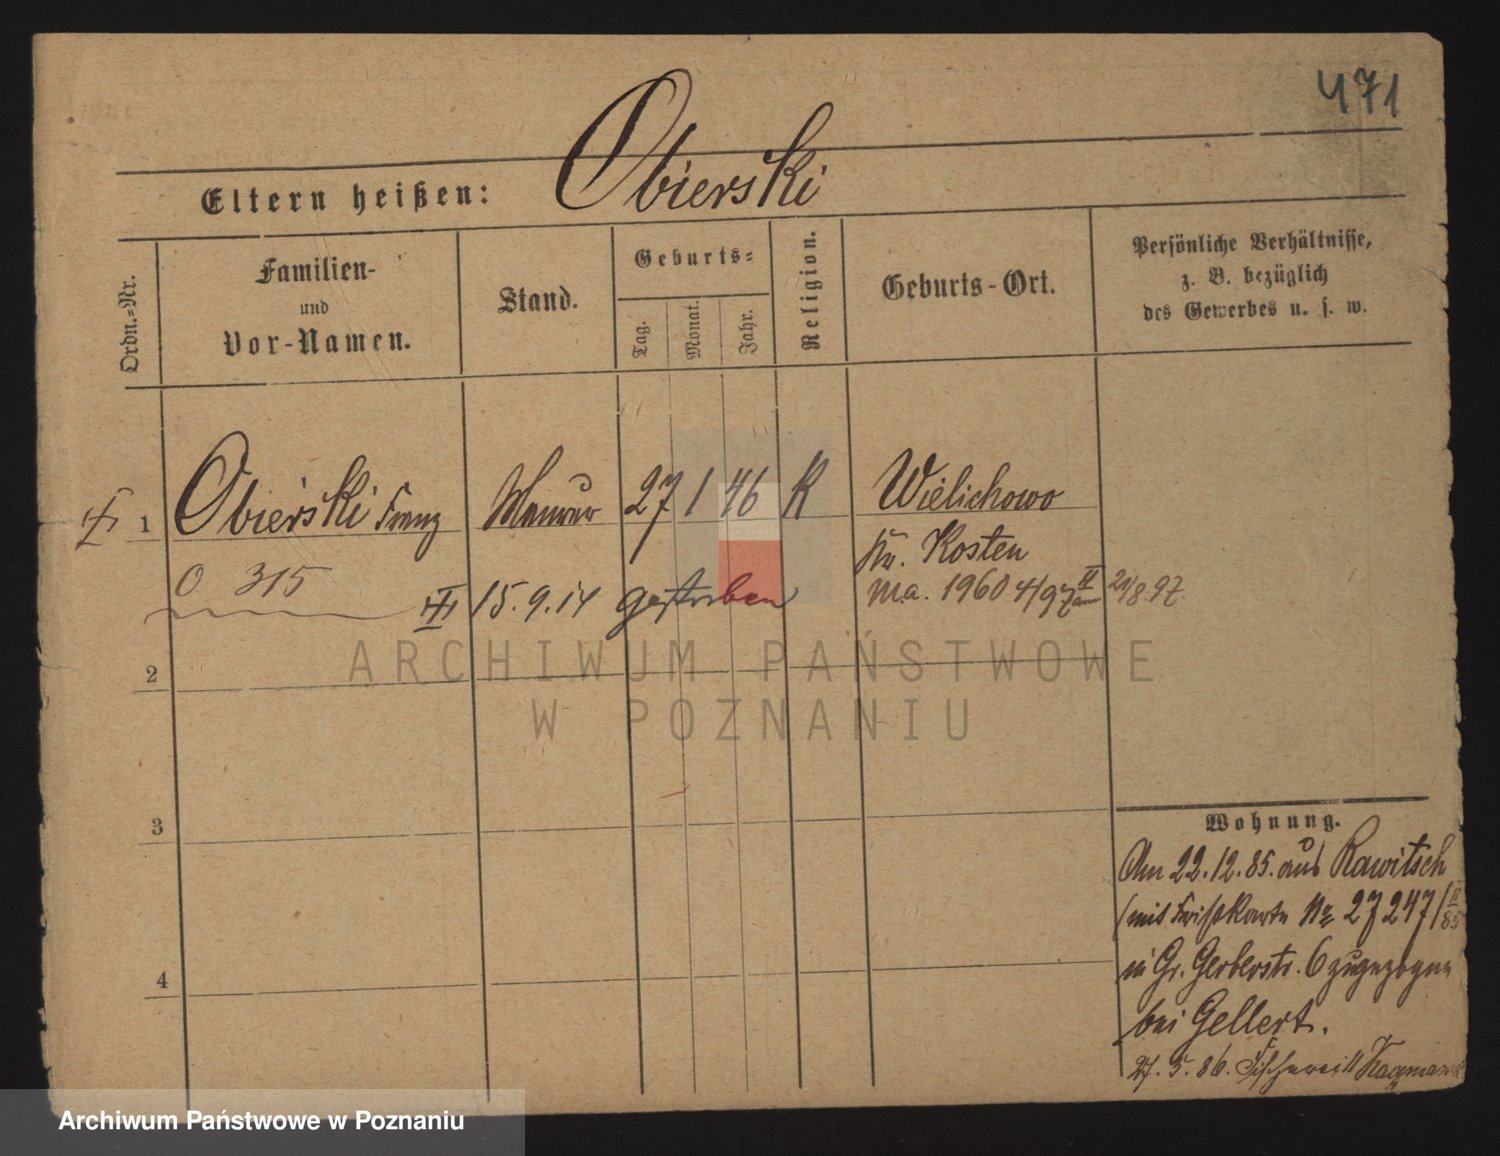 471
Eltern heißen: Obierski
Ordn.-Nr.
Familien-
und
Vor-Namen.
Stand.
Geburts-
Tag.
Monat.
Jahr.
Religion.
Geburts-Ort.
Persönliche Verhältnisse,
z. B. bezüglich
des Gewerbes u. s. w.
1 Obierski Franz Maurer 27 1 46 K Wielichowo
Kr. Kosten
O 315 15.9.14 gestorben M.a. 1960 4/97 21/8.97
2
ARCHIWUM PAŃSTWOWE
W POZNANIU
3
4
Wohnung.
Am 22.12.85. aus Rawitsch
(mit Fristkarte No 27247/ II 85
in Gr. Gerberstr. 6 zugezogen
bei Gellert.
27. 5. 86.
Archiwum Państwowe w Poznaniu